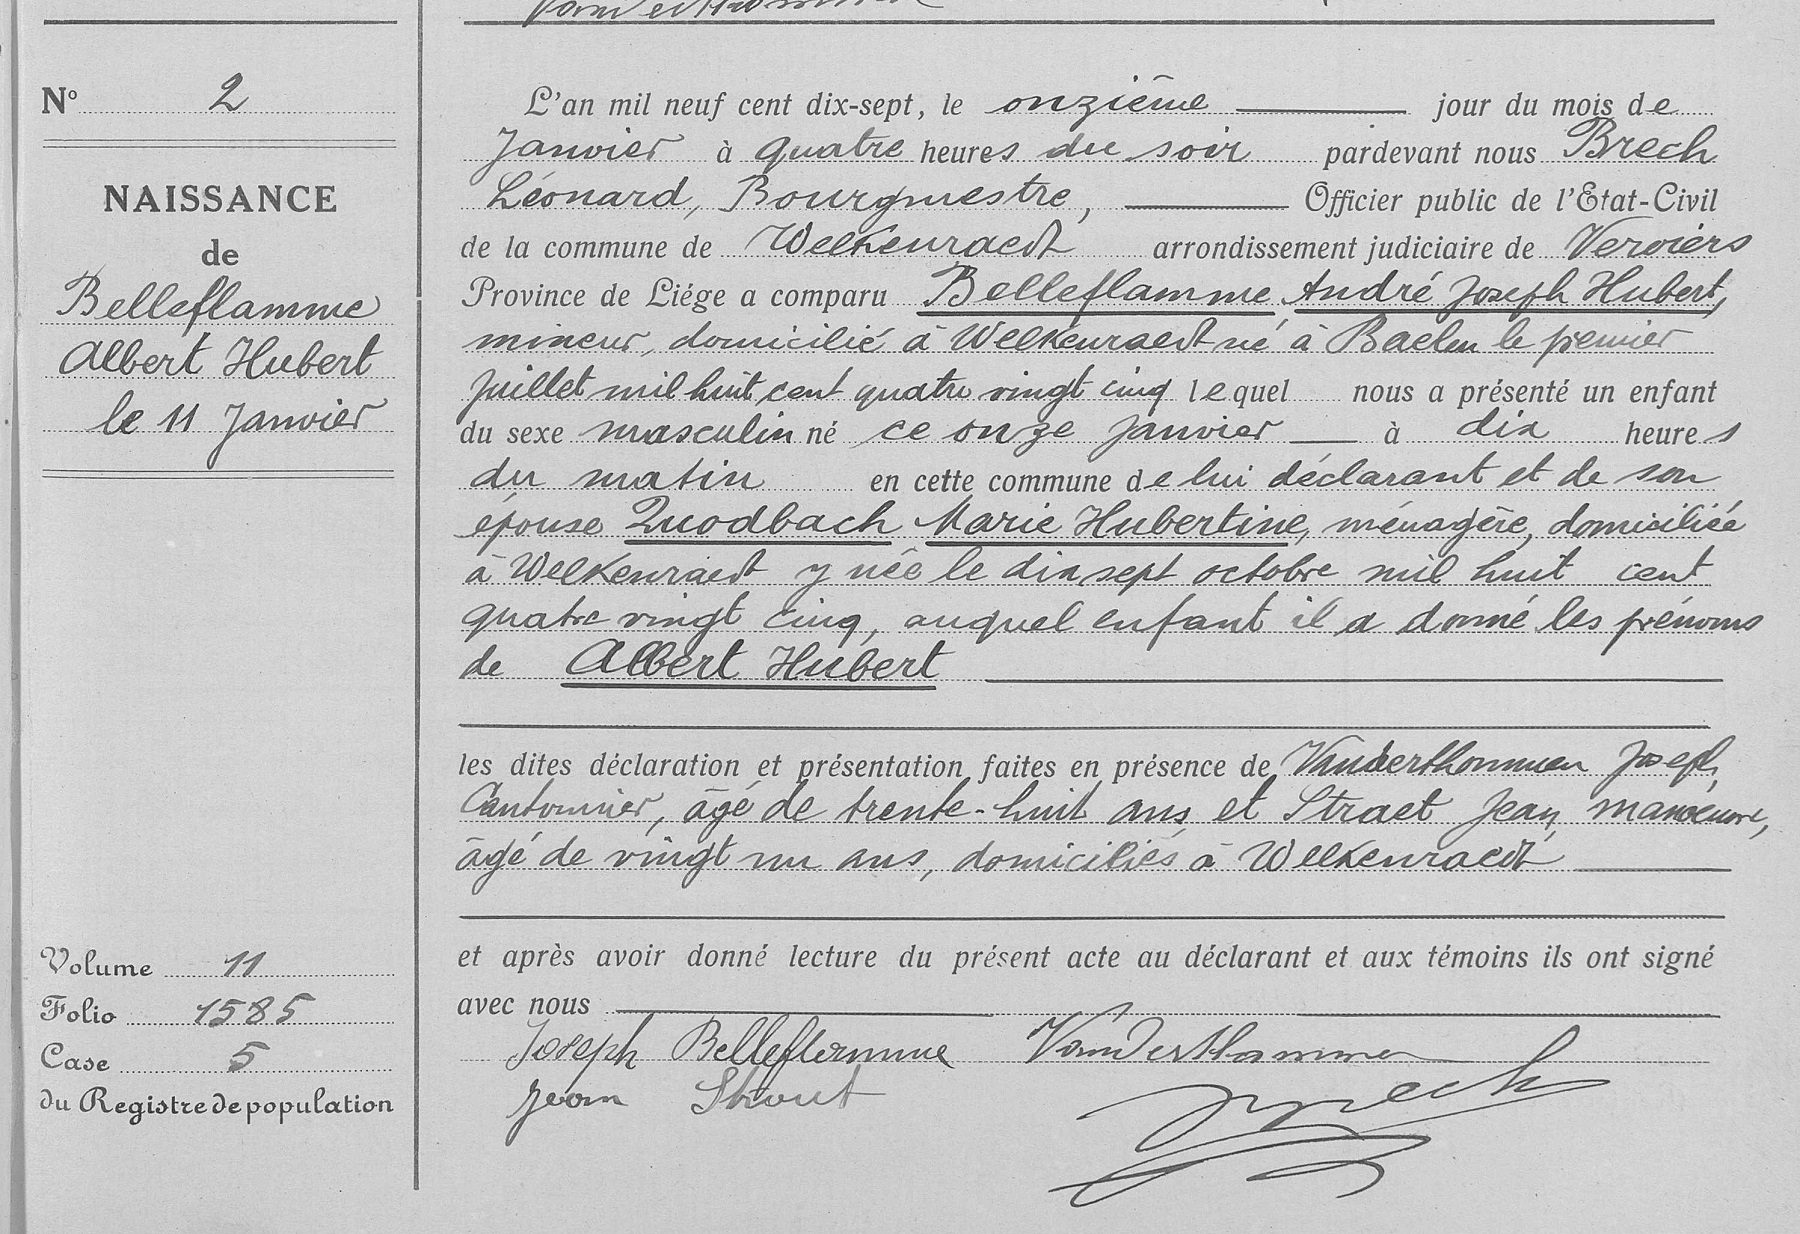 Vanderthommen
N° 2
NAISSANCE
de
Belleflamme
Albert Hubert
le 11 Janvier
L'an mil neuf cent dix-sept, le onzième jour du mois de
Janvier à quatre heures du soir pardevant nous Brech
Léonard, Bourgmestre, Officier public de l'Etat-Civil
de la commune de Welkenraedt arrondissement judiciaire de Verviers
Province de Liége a comparu Belleflamme André Joseph Hubert,
mineur, domicilié à Welkenraedt né à Baelen le premier
Juillet mil huit cent quatre vingt cinq lequel nous a présenté un enfant
du sexe masculin né ce onze Janvier à dix heures
du matin en cette commune de lui déclarant et de son
épouse Quodbach Marie Hubertine, ménagère, domiciliée
à Welkenraedt y née le dix sept octobre mil huit cent
quatre vingt cinq, auquel enfant il a donné les prénoms
de Albert Hubert
les dites déclaration et présentation faites en présence de Vanderthommen Joseph,
Cantonnier, âgé de trente-huit ans, et Straet Jean, manoeuvre,
âgé de vingt un ans, domiciliés à Welkenraedt
et après avoir donné lecture du présent acte au déclarant et aux témoins ils ont signé
avec nous
Joseph Belleflamme Vanderthommen
Jean Straet Brech
Volume 11
Folio 1585
Case 5
du Registre de population